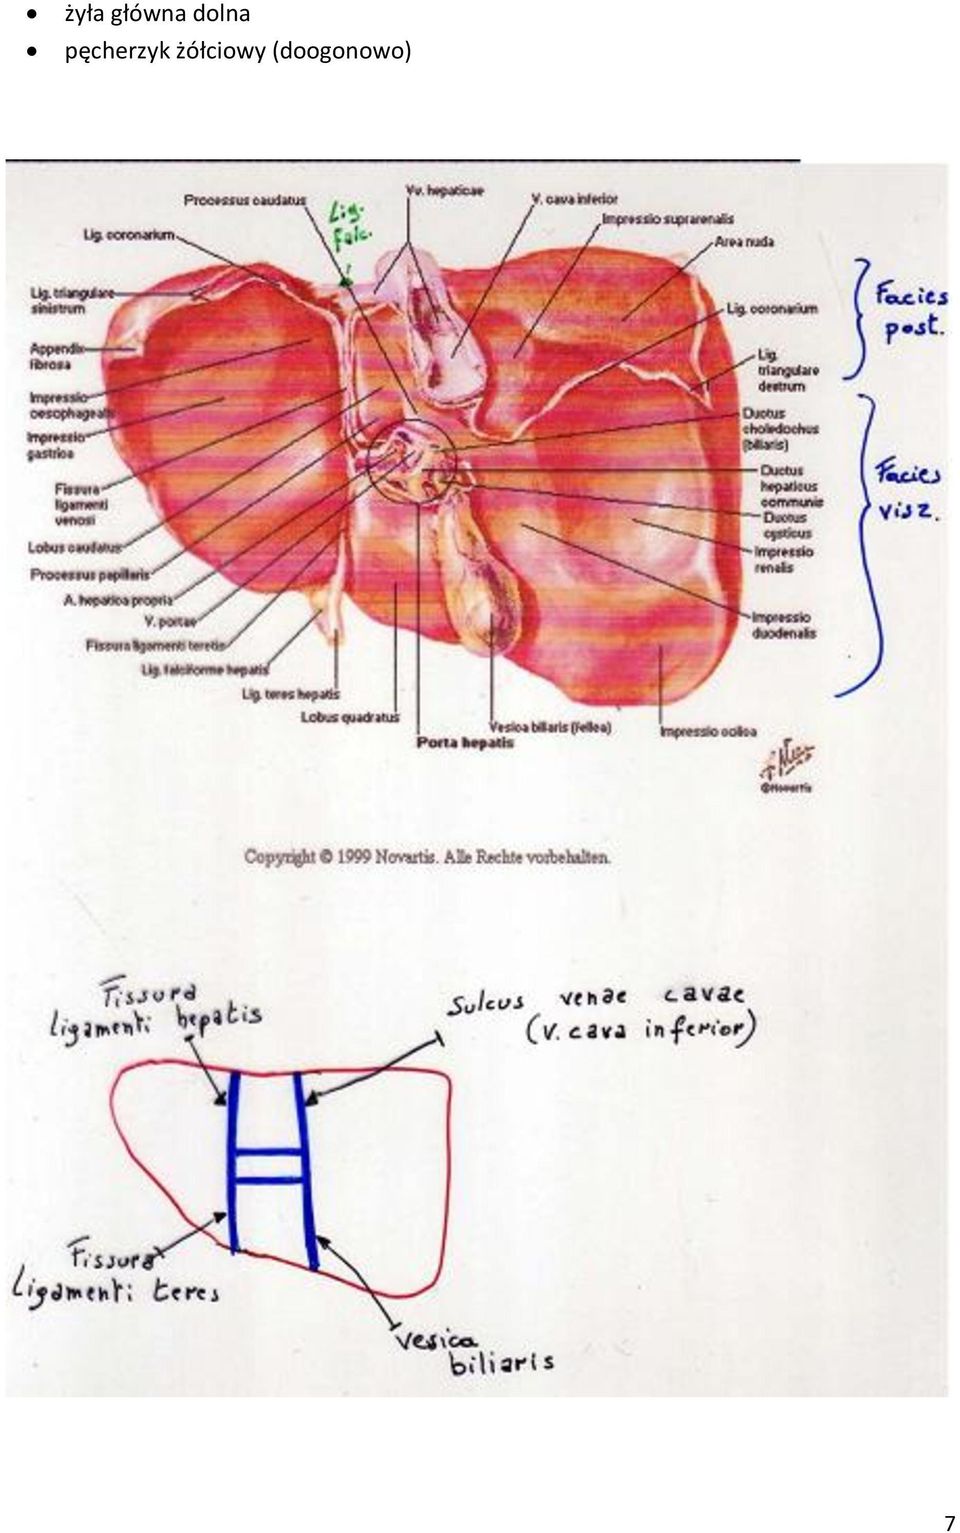 • żyła główna dolna
• pęcherzyk żółciowy (doogonowo)
Processus caudatus
Lig. Falc.
Vv. hepaticae
V. cava inferior
Impressio suprarenalis
Area nuda
Lig. coronarium
Lig. triangulare
sinistrum
Appendix
fibrosa
Impressio
oesophagealis
Impressio
gastrica
Fissura
ligamenti
venosi
Lobus caudatus
Processus papillaris
A. hepatica propria
V. portae
Fissura ligamenti teretis
Lig. falciforme hepatis
Lig. teres hepatis
Lobus quadratus
Porta hepatis
Vesica biliaris (fellea)
Impressio colica
Lig. coronarium
Lig.
triangulare
dextrum
Ductus
choledochus
(biliaris)
Ductus
hepaticus
communis
Ductus
cysticus
Impressio
renalis
Impressio
duodenalis
Facies
post.
Facies
visz.
©Novartis
Copyright © 1999 Novartis. Alle Rechte vorbehalten.
Fissura
ligamenti hepatis
Sulcus venae cavae
(V. cava inferior)
Fissura
Ligamenti teres
Vesica
biliaris
7